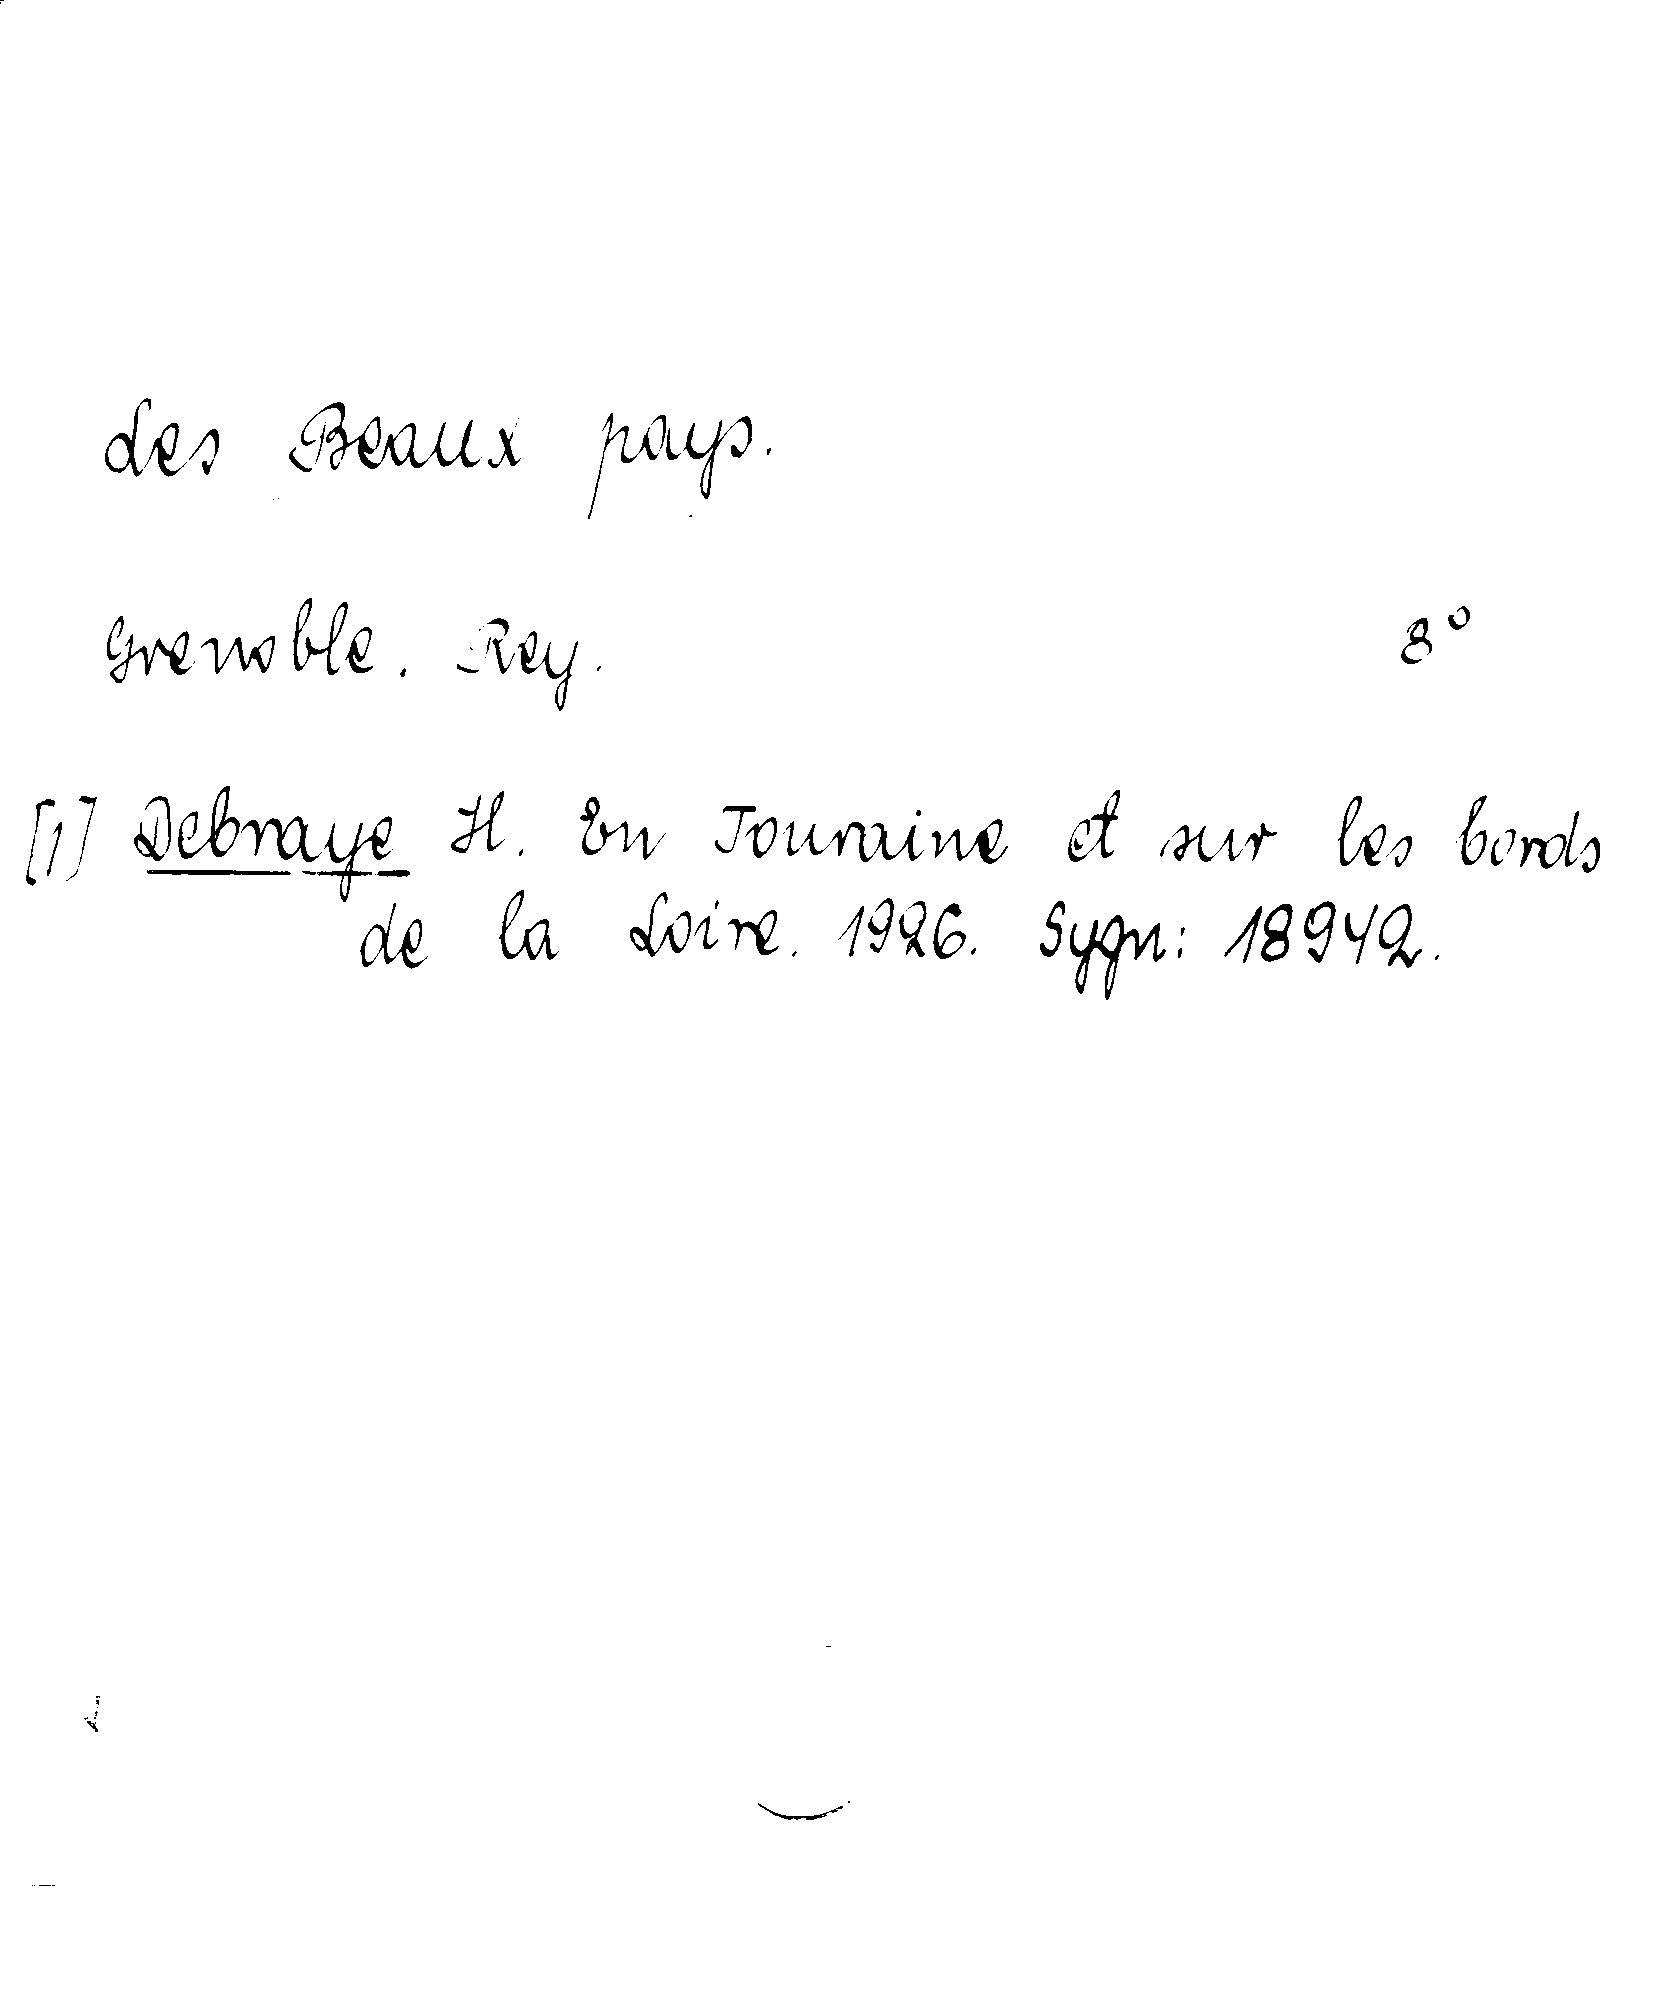 Les Beaux pays.
Grenoble. Rey. 8°
[1] Debraye H. En Touraine et sur les bords
de la Loire. 1926. Sygn: 18942.